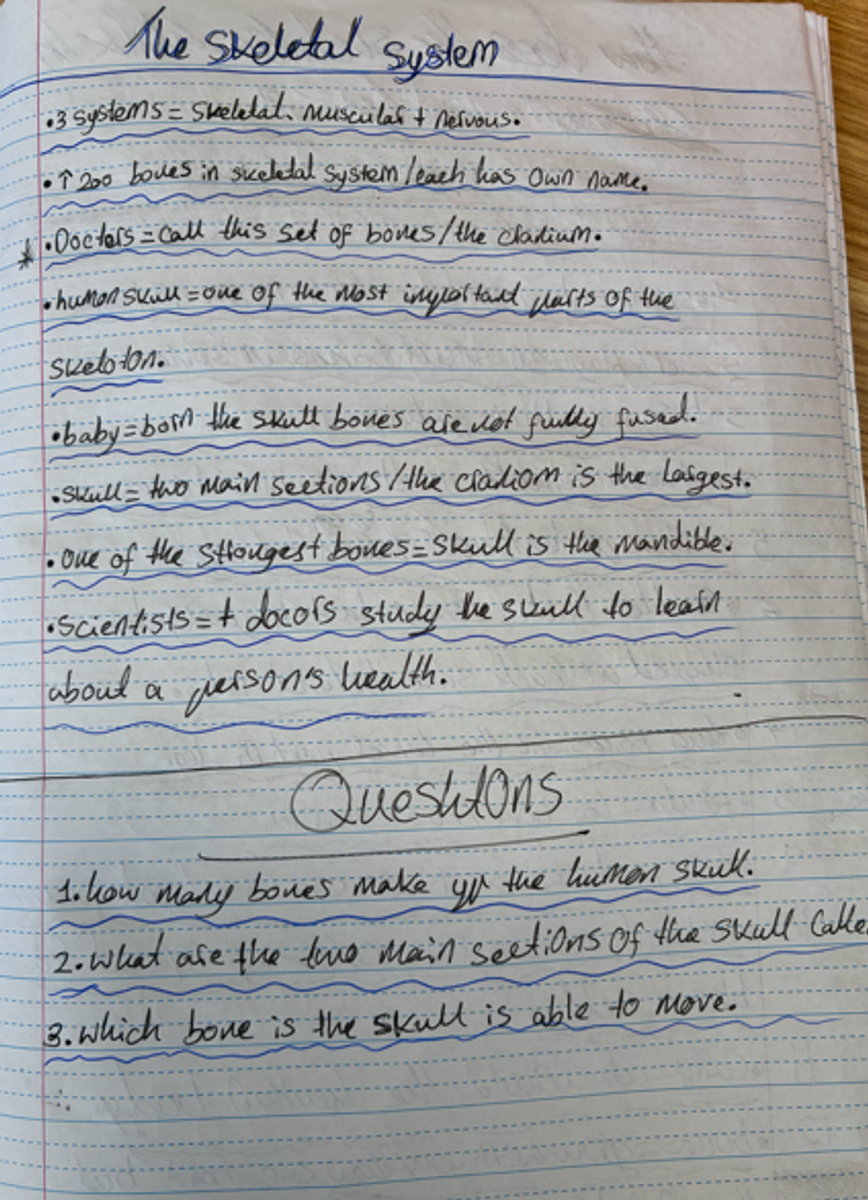 The Skeletal System
•3 systems = skeletal. muscular + nervous.
•↑ 200 bones in skeletal system / each has own name.
* •Doctors = call this set of bones / the cradium.
•human skull = one of the most important parts of the
skeloton.
•baby = born the skull bones are not fully fused.
•skull = two main sections / the cradiom is the largest.
•one of the strongest bones = skull is the mandible.
•scientists = + docors study the skull to learn
about a person's health.
Questions
1. how many bones make up the human skull.
2. what are the two main sections of the skull calle
3. which bone is the skull is able to move.